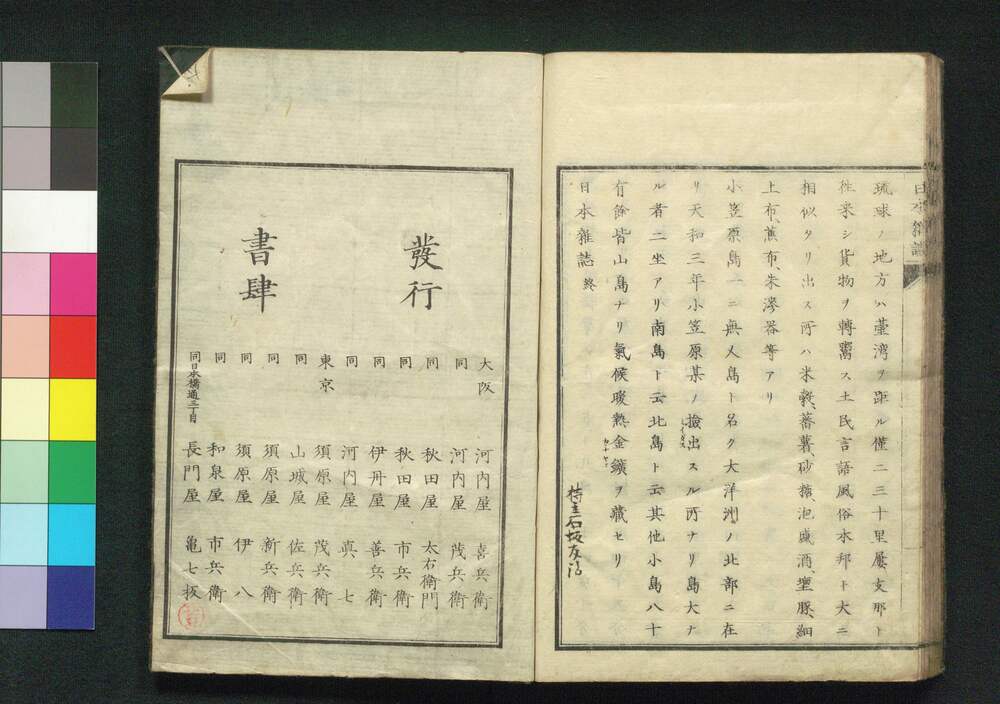 琉球ノ地方ハ臺湾ヲ距ル僅ニ三十里屢支那ト
徃来シ貨物ヲ轉鬻ス土民言語風俗本邦ト大ニ
相似タリ出ス所ハ米穀、蕃薯、砂糖、泡盛酒、塩豚、細
上布、蕉布、朱漆器等アリ
小笠原島一ニ無人島ト名ク大洋洲ノ北部ニ在
リ天和三年小笠原某ノ撿出スル所ナリ島大ナ
ル者二坐アリ南島ト云北島ト云其他小島八十
有餘皆山島ナリ氣候暖熱金鑛ヲ藏セリ
日本雑誌 終
持主石坂友治
發行
書肆
大阪 河内屋 喜兵衛
同 河内屋 茂兵衛
同 秋田屋 太右衛門
同 秋田屋 市兵衛
同 伊丹屋 善兵衛
同 河内屋 真七
東京 須原屋 茂兵衛
同 山城屋 佐兵衛
同 須原屋 新兵衛
同 須原屋 伊八
同 和泉屋 市兵衛
同日本橋通三丁目 長門屋 亀七板